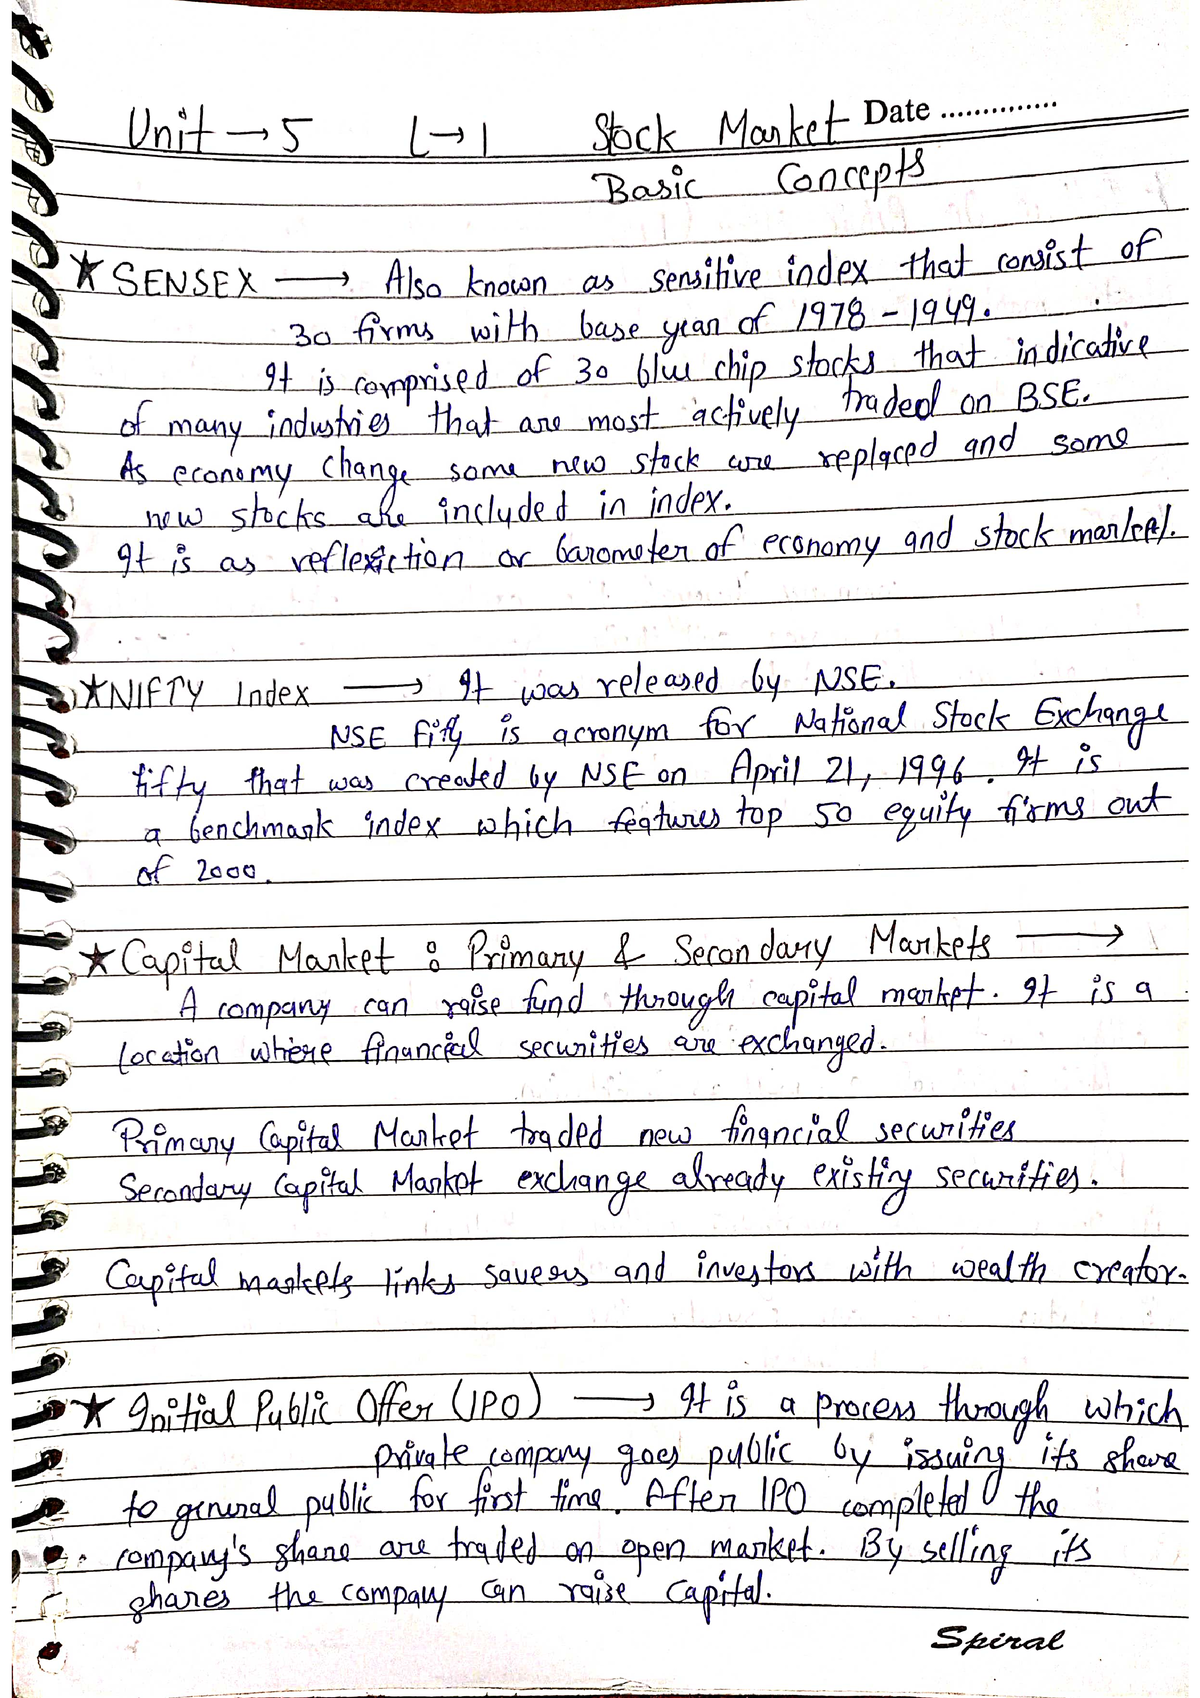 Date ..............
Unit → 5 L → 1 Stock Market
Basic Concepts
★ SENSEX → Also known as sensitive index that consist of
30 firms with base year of 1978 - 1949.
It is comprised of 30 blue chip stocks that indicative
of many industries that are most actively traded on BSE.
As economy change some new stock are replaced and some
new stocks are included in index.
It is as reflexiction or barometer of economy and stock market.
★ NIFTY Index → It was released by NSE.
NSE Fifty is acronym for National Stock Exchange
fifty that was created by NSE on April 21, 1996. It is
a benchmark index which features top 50 equity firms out
of 2000.
★ Capital Market : Primary & Secondary Markets →
A company can raise fund through capital market. It is a
Location where financial securities are exchanged.
Primary Capital Market traded new financial securities
Secondary Capital Market exchange already existing securities.
Capital markets links savers and investors with wealth creator.
★ Initial Public Offer (IPO) → It is a process through which
private company goes public by issuing its share
to general public for first time. After IPO completed the
company's share are traded on open market. By selling its
shares the company can raise capital.
Spiral